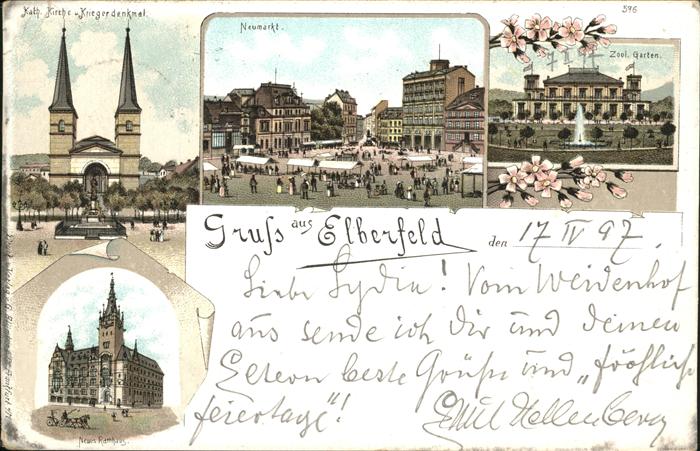 Kath. Kirche u. Kriegerdenkmal.
Neumarkt.
596
17 II 97
Zool. Garten.
Gruss aus Elberfeld
den 17 IV 97.
Liebe Lydia! Vom Weidenhof
aus sende ich Dir und deinen
Eltern beste Grüße und „fröhliche
feiertage"!
Emil Hellenberg
Neues Rathaus.